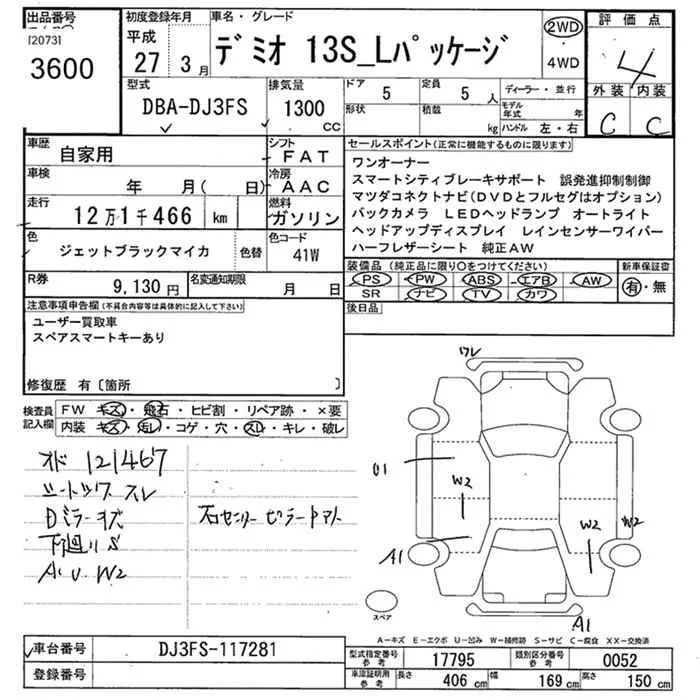 出品番号
[2073]
3600
初度登録年月
平成
27 3月
車名・グレード
デミオ 13S_Lパッケージ
2WD
・
4WD
評価点
4
外装 内装
C C
型式
DBA-DJ3FS
排気量
1300
CC
ドア
5
形状
定員
5人
積載
kg
ディーラー・並行
モデル年式 年
ハンドル 左・右
車歴
自家用
シフト
FAT
車検
年 月( 日)
冷房
AAC
走行
12万1千466 km
燃料
ガソリン
色
ジェットブラックマイカ
色替
色コード
41W
R券
9,130円
名変通知期限
月 日
セールスポイント(正常に機能するものに限ります)
ワンオーナー
スマートシティブレーキサポート 誤発進抑制制御
マツダコネクトナビ(DVDとフルセグはオプション)
バックカメラ LEDヘッドランプ オートライト
ヘッドアップディスプレイ レインセンサーワイパー
ハーフレザーシート 純正AW
装備品(純正品に限り○をつけてください)
PS PW ABS エアB AW
SR ナビ TV カワ
新車保証書
有・無
後日品
注意事項申告欄(不具合内容等は具体的に記入して下さい)
ユーザー買取車
スペアスマートキーあり
修復歴 有〔箇所 〕
検査員記入欄
FW キズ・飛石・ヒビ割・リペア跡・×要
内装 キズ・汚レ・コゲ・穴・スレ・キレ・破レ
オド 121467
シートツワ スレ
Dミラーキズ
下廻りS
A1 U W2
石センターピラー
ワレ
U1
W2
W2
W2
A1
A1
スペア
A-キズ E-エクボ U-凹み W-補修跡 S-サビ C-腐食 XX-交換済
車台番号
DJ3FS-117281
登録番号
型式指定番号
参考
17795
類別区分番号
参考
0052
車庫証明用
参考
長さ
406 cm
幅
169 cm
高さ
150 cm